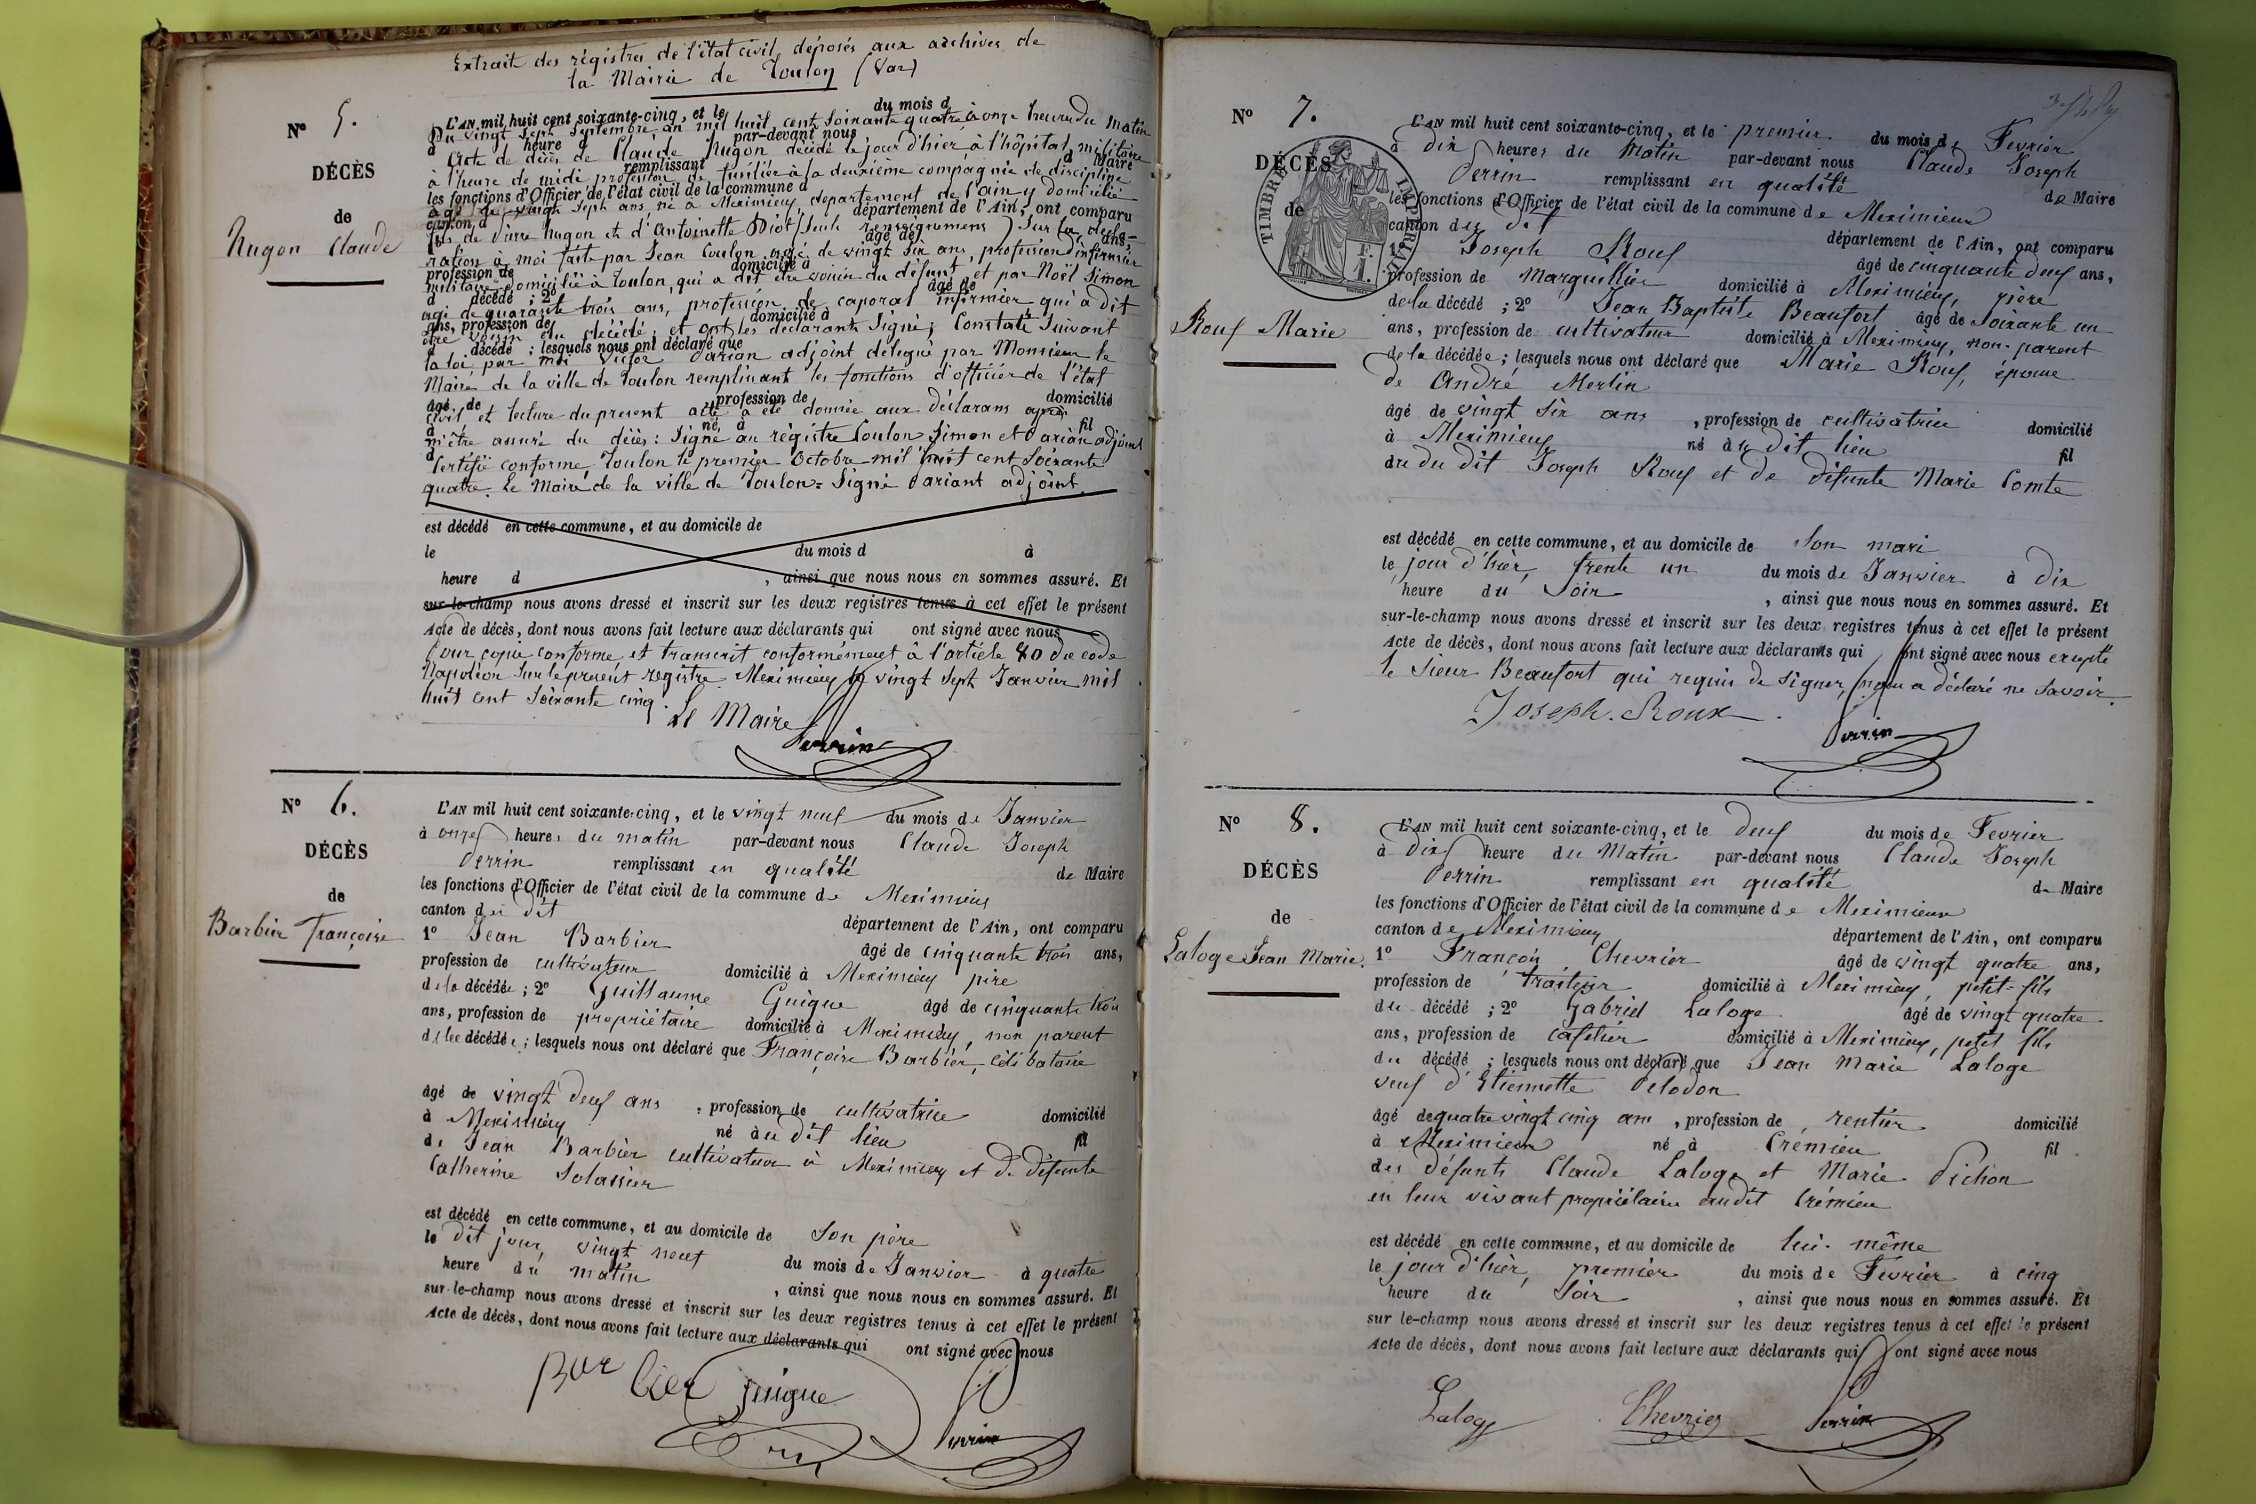 Extrait des régistres de l'état civil, déposés aux archives de
la Mairie de Toulon (Var)
N° 5.
DÉCÈS
de
Hugon Claude
L'AN mil huit cent soixante-cinq, et le du mois d
Du vingt sept Septembre an mil huit cent soixante quatre à onze heures du matin
à heure d par-devant nous
Acte de décès de Claude Hugon décédé le jour d'hier à l'hôpital militaire
remplissant d Maire
à l'heure de midi profession de fusilier à la deuxième compagnie de discipline
les fonctions d'Officier de l'état civil de la commune d
âgé de vingt sept ans, né à Meximieux, département de l'ain y domicilié
canton d département de l'Ain, ont comparu
fils de Pierre Hugon et d'Antoinette Diot (seuls renseignemens) Sur la décla-
âgé de ans,
ration à moi faite par Jean Coulon agé de vingt six ans, profession d'infirmier
profession de domicilié à
militaire domicilié à Toulon, qui a dit être voisin du défunt et par Noël Simon
d décédé ; 2° âgé de
agé de quarante trois ans, profession de caporal infirmier qui a dit
ans, profession de domicilié à
être voisin du décédé, et ont les déclarants signé; Constaté suivant
d décédé ; lesquels nous ont déclaré que
la loi par moi Victor Darian adjoint délegué par Monsieur le
Maire de la ville de Toulon remplissant les fonctions d'officier de l'état
âgé de profession de domicilié
civil, et lecture du present acte a été donnée aux déclarans après
à né à fil
m'être assuré du décès: Signé au régistre Coulon Simon et Darian adjoint
d
Certifié conforme, Toulon le premier Octobre mil huit cent soixante
quatre. Le Maire de la ville de Toulon = Signé Dariant adjoint
est décédé en cette commune, et au domicile de
le du mois d à
heure d , ainsi que nous nous en sommes assuré. Et
sur-le-champ nous avons dressé et inscrit sur les deux registres tenus à cet effet le présent
Acte de décès, dont nous avons fait lecture aux déclarants qui ont signé avec nous
Pour copie conforme et transcrit conformément à l'article 80 du code
Napoléon sur le présent registre Meximieux le vingt sept Janvier mil
huit cent soixante cinq.
Le Maire
Perrin
N° 6.
DÉCÈS
de
Barbier Françoise
L'AN mil huit cent soixante-cinq, et le vingt neuf du mois de Janvier
à onze heures du matin par-devant nous Claude Joseph
Perrin remplissant en qualité de Maire
les fonctions d'Officier de l'état civil de la commune de Meximieux
canton du dit département de l'Ain, ont comparu
1° Jean Barbier âgé de cinquante trois ans,
profession de cultivateur domicilié à Meximieux père
de la décédée ; 2° Guillaume Guigue âgé de cinquante trois
ans, profession de propriétaire domicilié à Meximieux, non parent
de lee décédée ; lesquels nous ont déclaré que Françoise Barbier, célibataire
âgé de vingt deux ans , profession de cultivatrice domicilié
à Meximieux né au dit lieu fil
de Jean Barbier cultivateur à Meximieux et de défunte
Catherine Solassier
est décédé en cette commune, et au domicile de son père
le dit jour, vingt neuf du mois de Janvier à quatre
heure du matin , ainsi que nous nous en sommes assuré. Et
sur-le-champ nous avons dressé et inscrit sur les deux registres tenus à cet effet le présent
Acte de décès, dont nous avons fait lecture aux déclarants qui ont signé avec nous
Barbier guigue
Perrin
N° 7.
DÉCÈS
de
TIMBRE IMPERIAL
F. 1.
Roux Marie
L'AN mil huit cent soixante-cinq, et le premier du mois de Fevrier
à dix heures du Matin par-devant nous Claude Joseph
Perrin remplissant en qualité de Maire
les fonctions d'Officier de l'état civil de la commune de Meximieux
canton du dit département de l'Ain, ont comparu
1° Joseph Roux âgé de cinquante deux ans,
profession de Marguillier domicilié à Meximieux, père
de la décédé ; 2° Jean Baptiste Beaufort âgé de soixante un
ans, profession de cultivateur domicilié à Meximieux, non parent
de la décédée ; lesquels nous ont déclaré que Marie Roux, épouse
de André Merlin
âgé de vingt six ans , profession de cultivatrice domicilié
à Meximieux né au dit lieu fil
du du dit Joseph Roux et de défunte Marie Comte
est décédé en cette commune, et au domicile de son mari
le jour d'hier, trente un du mois de Janvier à dix
heure du soir , ainsi que nous nous en sommes assuré. Et
sur-le-champ nous avons dressé et inscrit sur les deux registres tenus à cet effet le présent
Acte de décès, dont nous avons fait lecture aux déclarants qui ont signé avec nous excepté
le sieur Beaufort qui requis de signer, a déclaré ne savoir.
Joseph. Roux
Perrin
N° 8.
DÉCÈS
de
Laloge Jean Marie.
L'AN mil huit cent soixante-cinq, et le deux du mois de Fevrier
à dix heure du Matin par-devant nous Claude Joseph
Perrin remplissant en qualité de Maire
les fonctions d'Officier de l'état civil de la commune de Meximieux
canton de Meximieux département de l'Ain, ont comparu
1° François Chevrier âgé de vingt quatre ans,
profession de traiteur domicilié à Meximieux, petit-fils
du décédé ; 2° Gabriel Laloge âgé de vingt quatre
ans, profession de cafetier domicilié à Meximieux, petit fils
du décédé ; lesquels nous ont déclaré que Jean Marie Laloge
veuf d'Etiennette Pelodon
âgé de quatre vingt cinq ans , profession de rentier domicilié
à Meximieux né à Crémieu fil
des défunts Claude Laloge et Marie Pichon
en leur vivant propriétaires audit Crémieu
est décédé en cette commune, et au domicile de lui-même
le jour d'hier, premier du mois de Fevrier à cinq
heure du soir , ainsi que nous nous en sommes assuré. Et
sur le-champ nous avons dressé et inscrit sur les deux registres tenus à cet effet le présent
Acte de décès, dont nous avons fait lecture aux déclarants qui ont signé avec nous
Laloge Chevrier Perrin